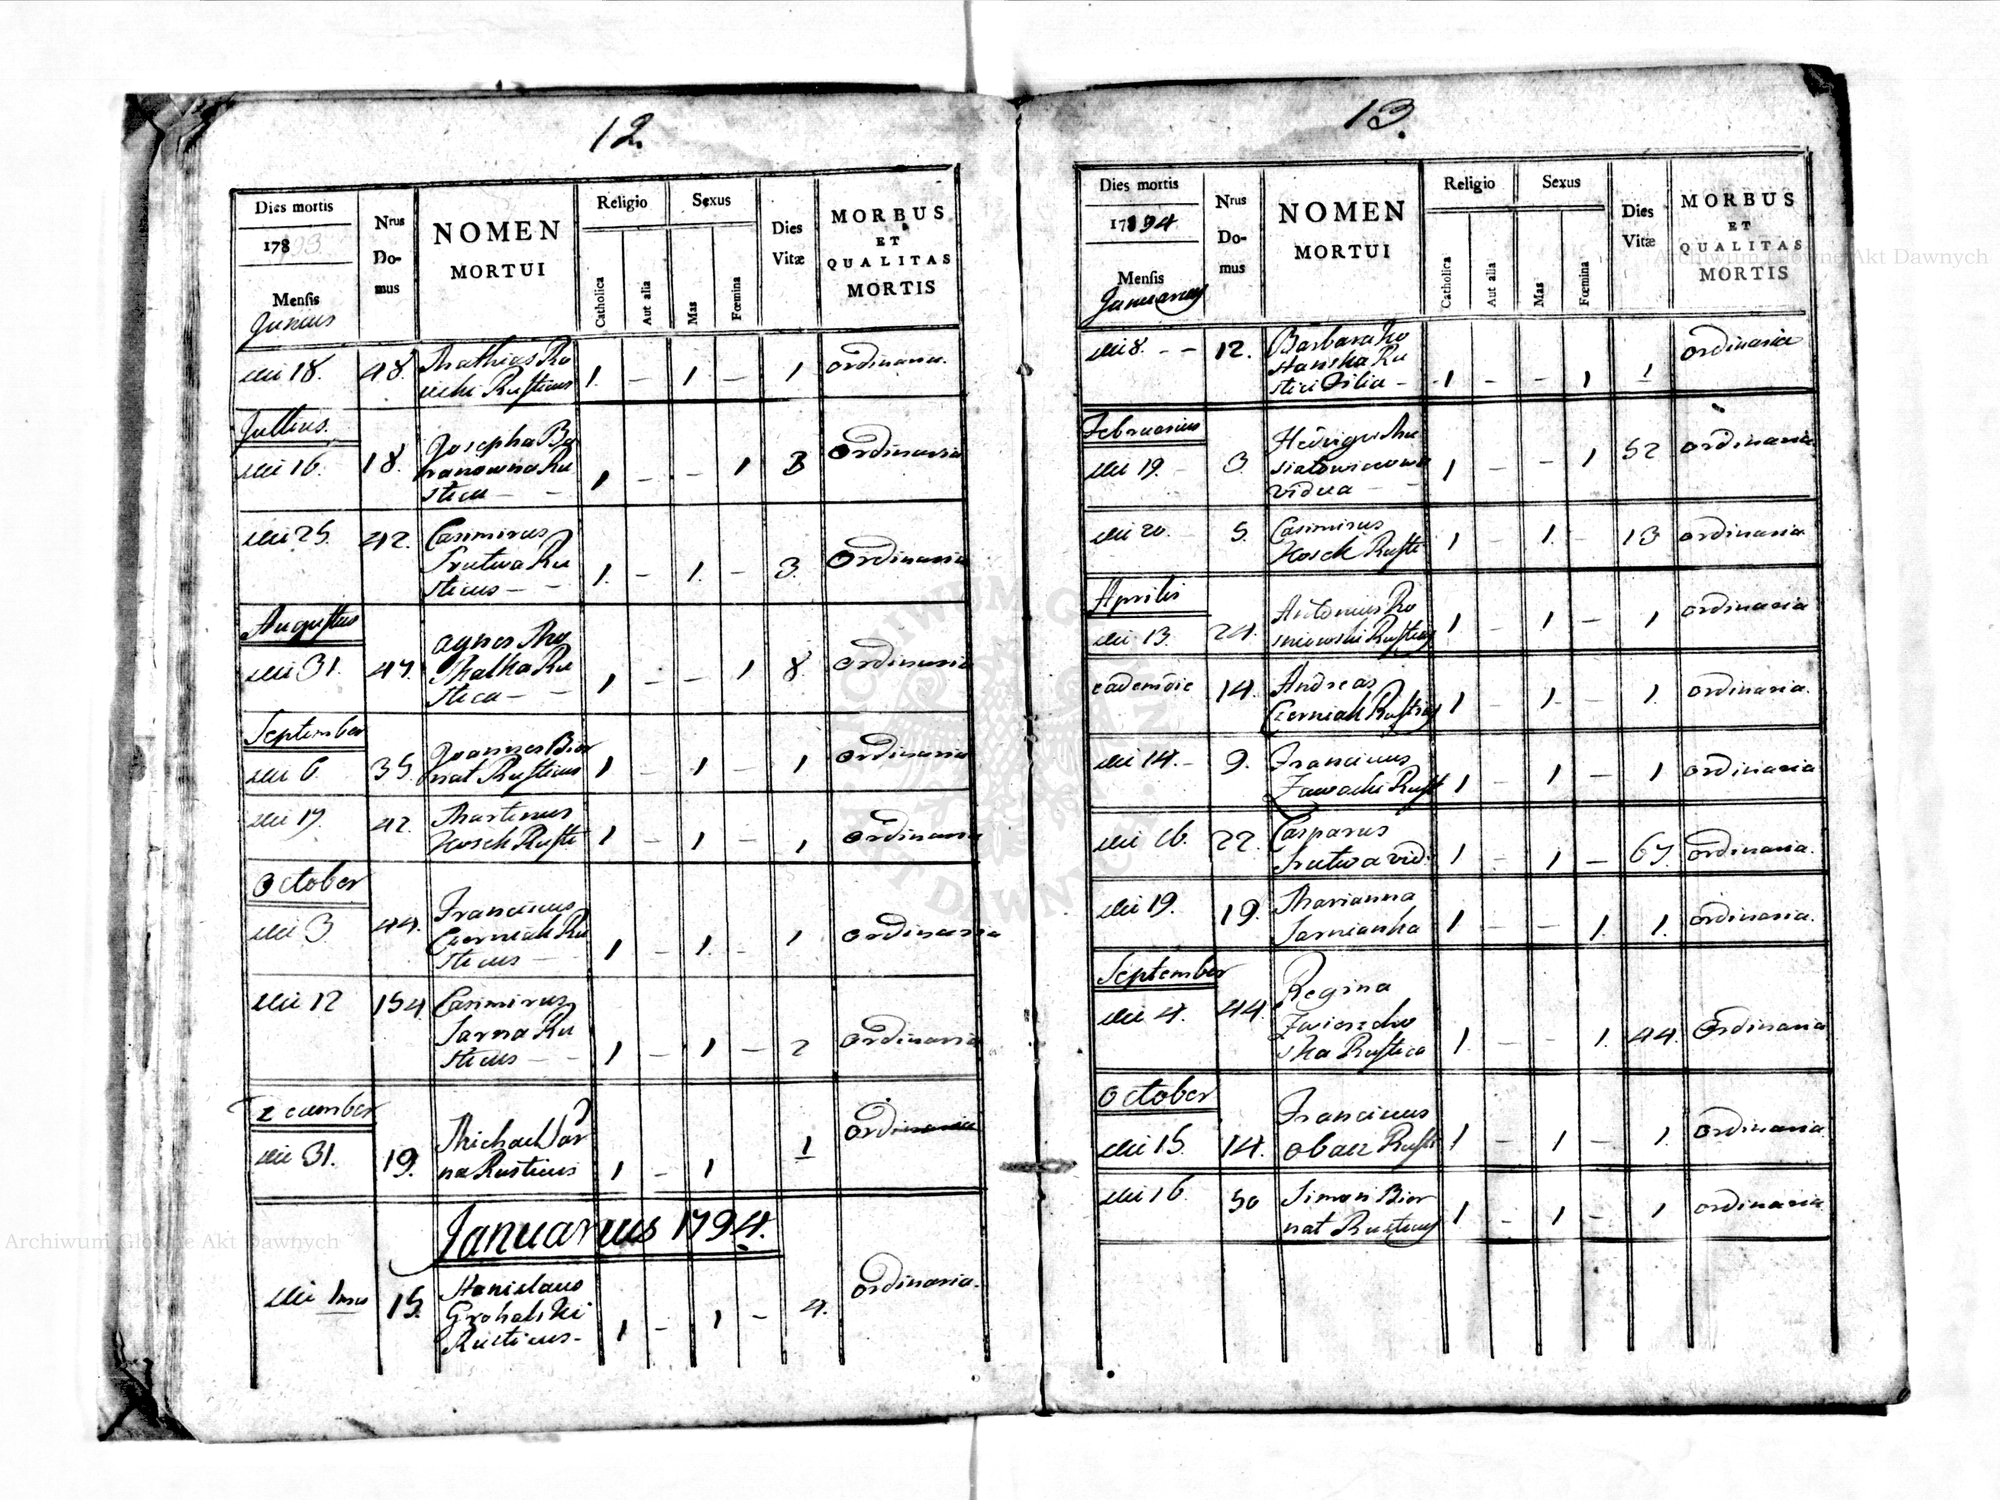 12.
Dies mortis
1783
Mensis
Junius
Nrus
Do-
mus
NOMEN
MORTUI
Religio
Catholica
Aut alia
Sexus
Mas
Fœmina
Dies
Vitæ
MORBUS
ET
QUALITAS
MORTIS
die 18. 48. Mathias
Rusticus 1. – 1 – 1 ordinaria
Jullius.
die 16. 18. Josepha
Ru
stica – – 1 – – 1 3 ordinaria
die 25. 42. Casimirus
Frutwa Ru
sticus – – 1. – 1. – 3. ordinaria
Augustus
die 31. 47. agnes
Ru
stica – – 1 – – 1 8 ordinaria
September
die 6. 35. Joannes Bier
nat Rusticus 1 – 1 – 1 ordinaria
die 17. 42. Martinus
Kosek Rusti 1 – 1 – 1 ordinaria
October
die 3 44. Franciscus
Czerniak Ru
sticus – 1 – 1. – 1 ordinaria
die 12 154 Casimirus
Sarna Ru
sticus – – 1 – 1 – 2 ordinaria
December
die 31. 19. Michael Sar
na Rusticus 1 – 1 1 ordinaria
Januarius 1794.
die 1ma 15. Stanislaus
Grohalski
Rusticus – 1 – 1 – 4. ordinaria.
13.
Dies mortis
1794
Mensis
Januarius
Nrus
Do-
mus
NOMEN
MORTUI
Religio
Catholica
Aut alia
Sexus
Mas
Fœmina
Dies
Vitæ
MORBUS
ET
QUALITAS
MORTIS
die 8. – – 12. Barbara
Ru
stici Filia – 1 – – 1 1 ordinaria
Februarius
die 19. – 3. Hedvigis
vidua – – 1 – – 1 52 ordinaria
die 20. 5. Casimirus
Kosek Rusti 1 – 1. – 13 ordinaria
Aprilis
die 13. 24. Antonius Ro
Rusticus 1 – 1 – 1 ordinaria
eademdie 14. Andreas
Czerniak Rusticus 1 – 1 – 1. ordinaria.
die 14. – 9. Franciscus
Zawadi Rust 1 – 1 – 1 ordinaria
die 16. 22. Casparus
Frutwa vid. 1 – 1 – 67. ordinaria.
die 19. 19. Marianna
Sarnianka 1 – – 1. 1. ordinaria.
September
die 4. 44. Regina
Zwierzcho
ska Rustica 1. – – 1. 44. Ordinaria
October
die 15. 14. Franciscus
Rusti 1 – 1 – 1. ordinaria
die 16. 50 Simon Bier
nat Rusticus 1 – 1 – 1 ordinaria
Archiwum Główne Akt Dawnych
Archiwum Główne Akt Dawnych
ARCHIWUM GŁÓWNE AKT DAWNYCH